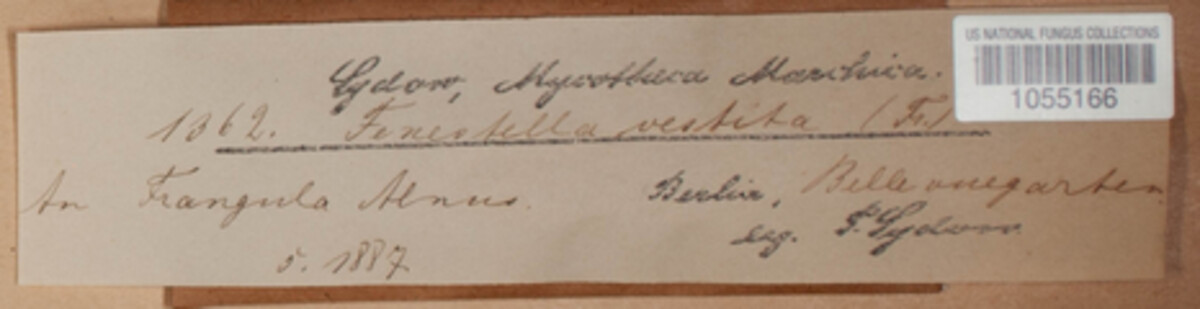 Sydow, Mycotheca Marchica.
1362. Fenestella vestita (Fr.)
An Frangula Alnus. Berlin, Bellevuegarten.
5. 1887 leg. P. Sydow.
US NATIONAL FUNGUS COLLECTIONS
1055166